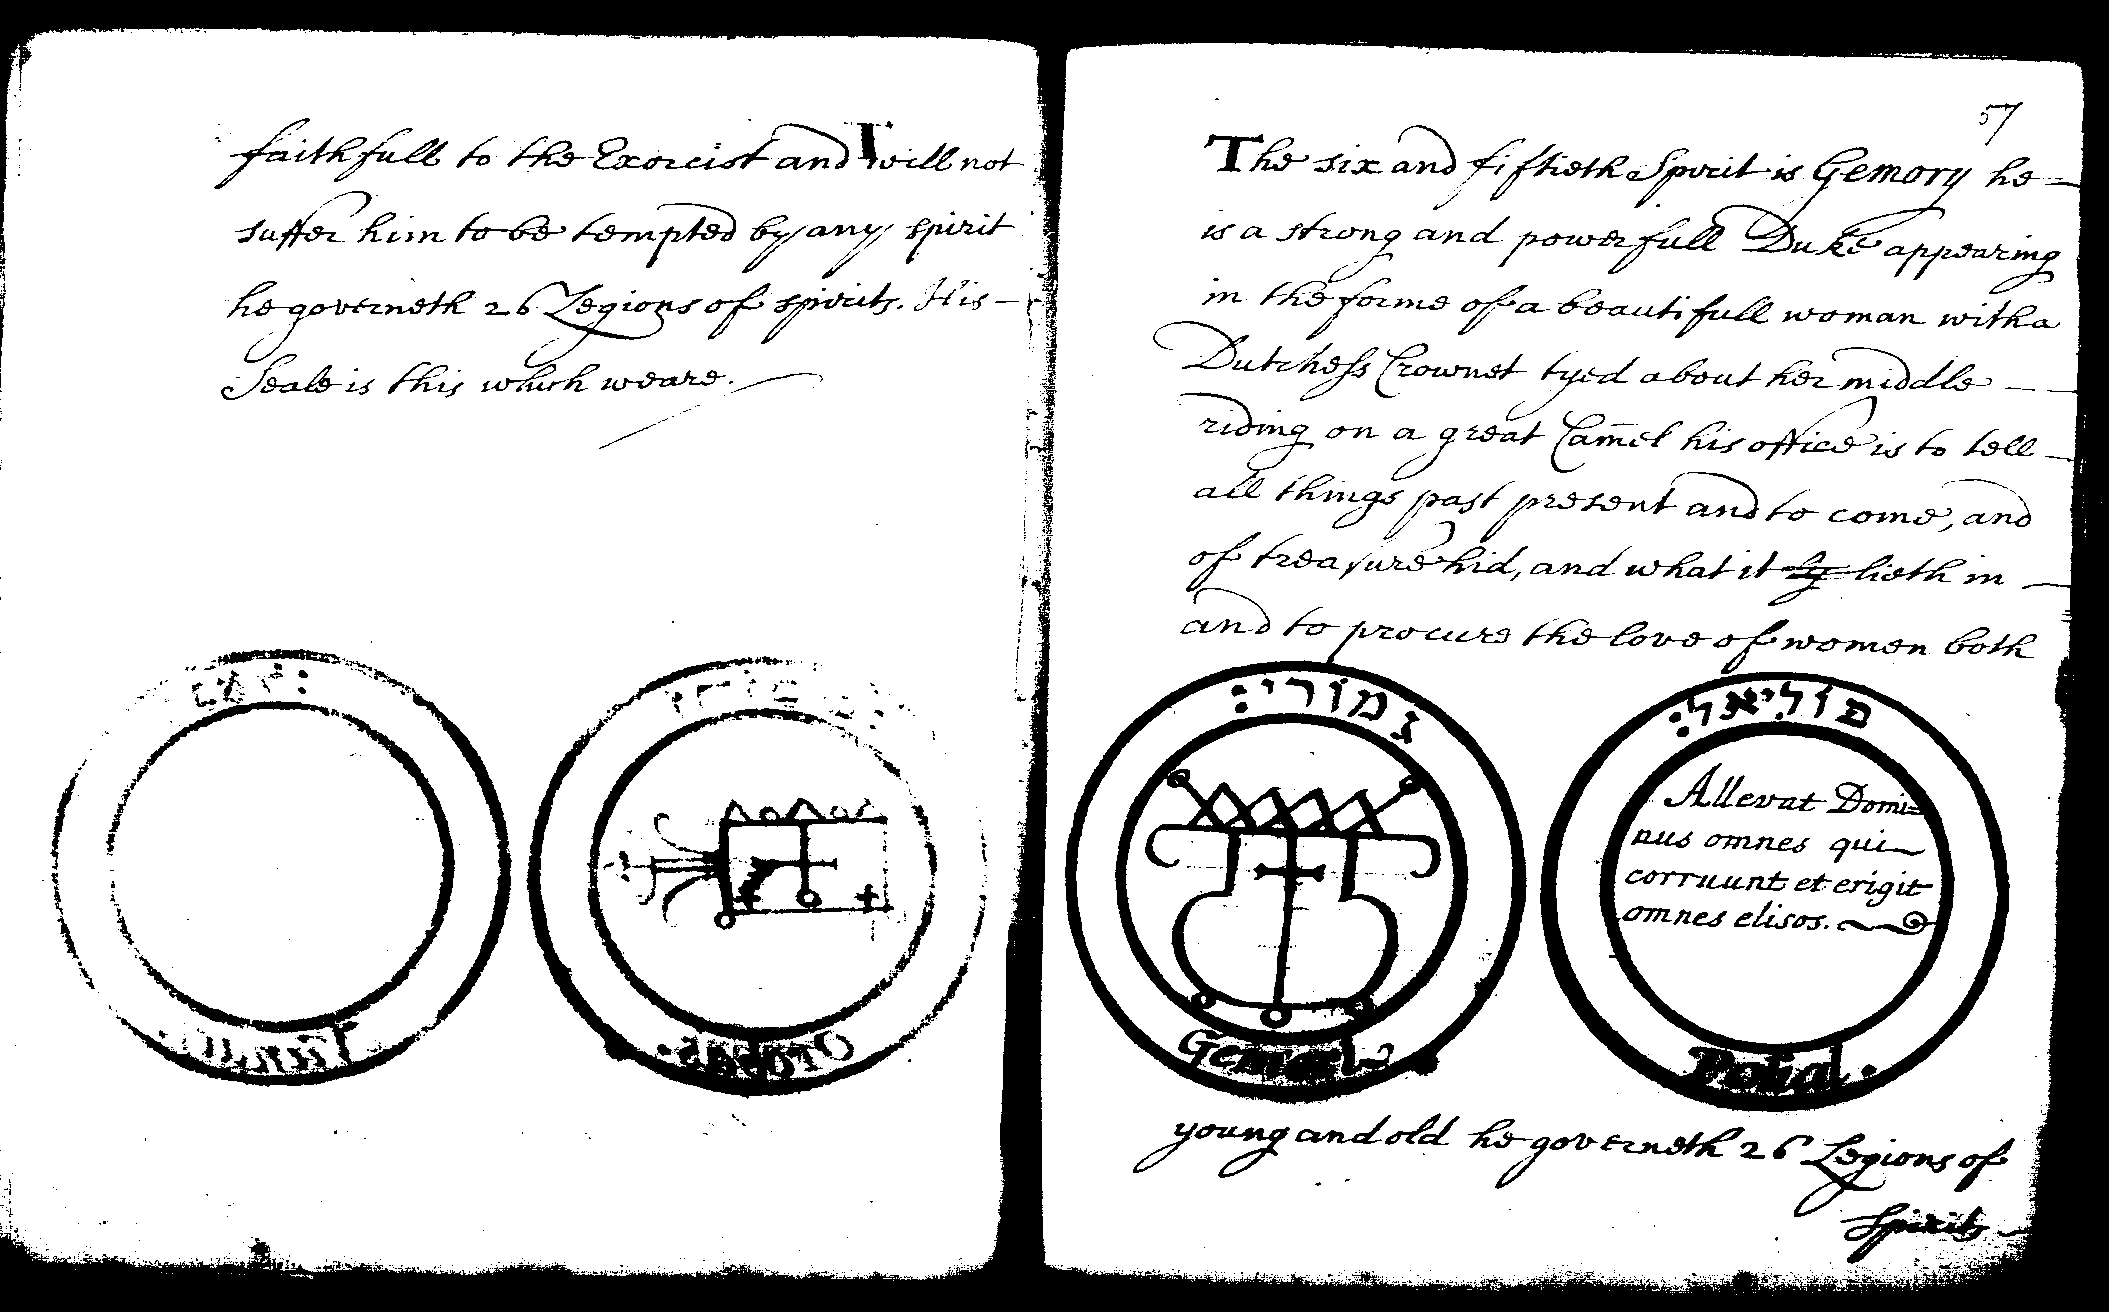 faithfull to the Exorcist and will not
suffer him to be tempted by any spirit
he governeth 26 Legions of spirits. His –
Seale is this which weare.
57
The six and fiftieth Spirit is Gemory he –
is a strong and powerfull Duke appearing
in the forme of a beautifull woman with a
Dutchess Crownet tyed about her middle – –
riding on a great Camel his office is to tell –
all things past present and to come, and
of treasure hid, and what it lieth in –
and to procure the love of women both
גמורי:
פוליאל:
Allevat Domi=
nus omnes qui
corruunt et erigit
omnes elisos.
Polial.
young and old he governeth 26 Legions of
Spirits –